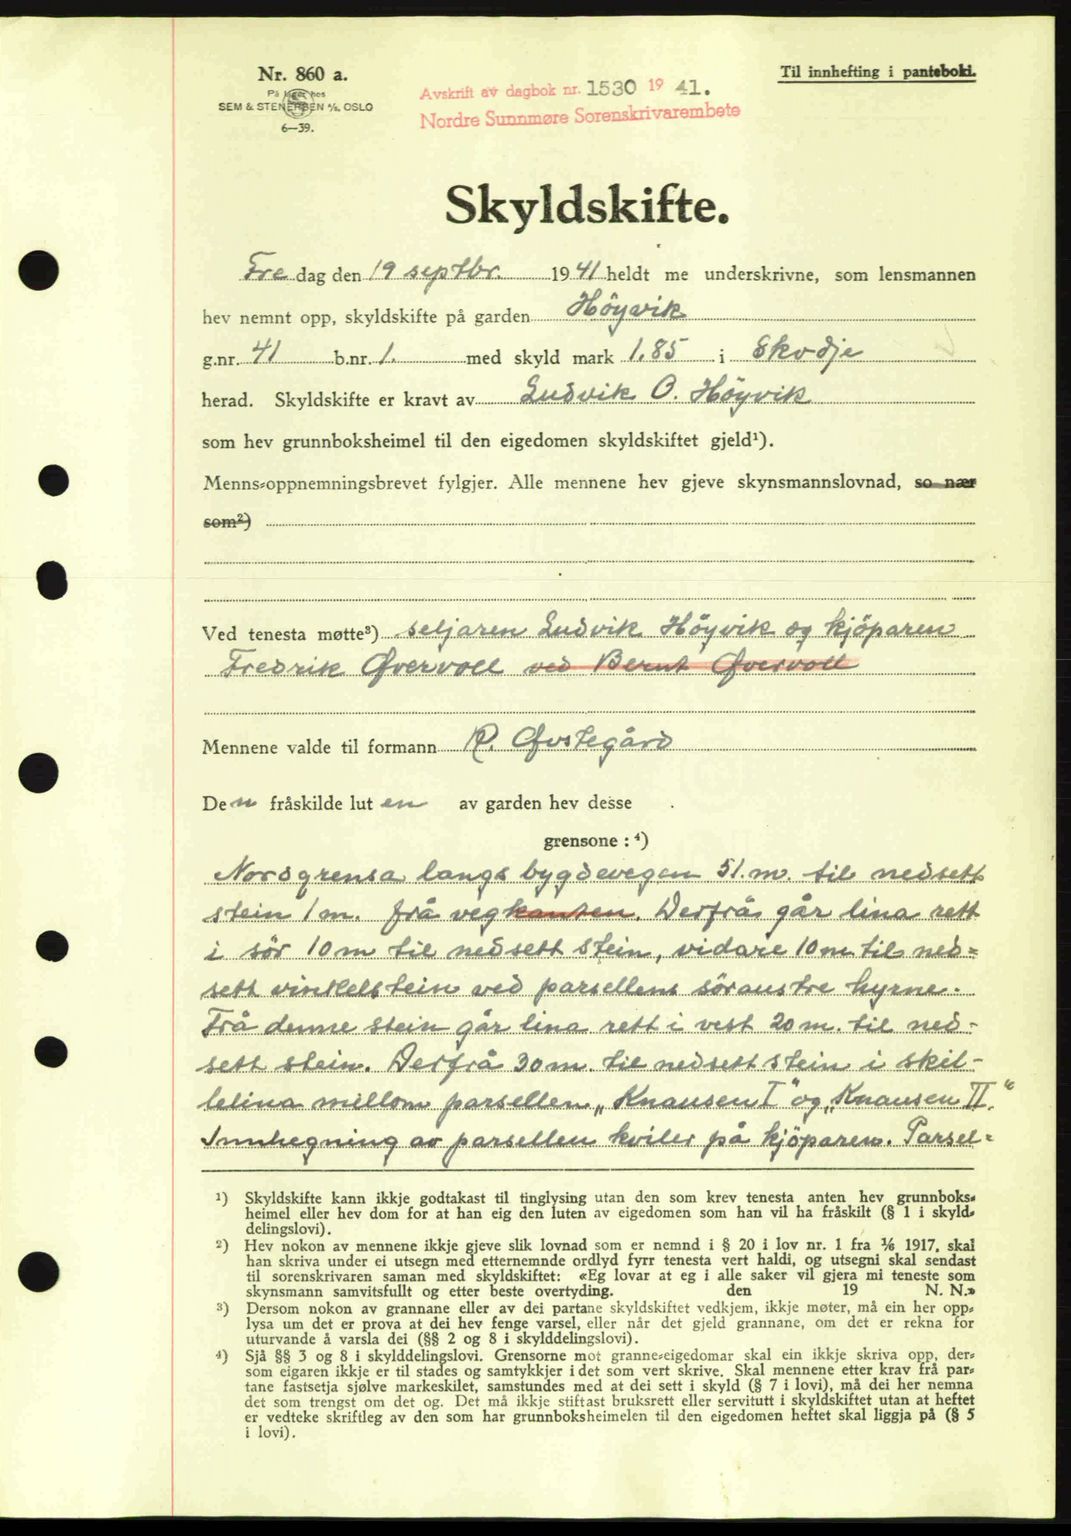 Nr. 860 a.
På lager hos
SEM & STENERSEN A/S. OSLO
6—39.
Avskrift av dagbok nr. 1530 1941.
Nordre Sunnmøre Sorenskrivarembete
Til innhefting i panteboki.
Skyldskifte.
Fredag den 19 septbr. 1941 heldt me underskrivne, som lensmannen
hev nemnt opp, skyldskifte på garden Höyvik
g.nr. 41 b.nr. 1. med skyld mark 1.85 i Skodje
herad. Skyldskifte er kravt av Ludvik O. Höyvik
som hev grunnboksheimel til den eigedomen skyldskiftet gjeld¹).
Menns-oppnemningsbrevet fylgjer. Alle mennene hev gjeve skynsmannslovnad, so nær
som²)
Ved tenesta møtte³) seljaren Ludvik Höyvik og kjöparen
Fredrik Øvervoll ved Bernt Øvervoll
Mennene valde til formann P. Øvstegård
Den fråskilde luten av garden hev desse
grensone : ⁴)
Nordgrensa langs bygdevegen 51. m. til nedsett
stein 1 m. frå vegkanten. Derfrå går lina rett
i sör 10 m til nedsett stein, vidare 10 m til ned=
sett vinkelstein ved parsellens söraustre hyrne.
Frå denne stein går lina rett i vest 20 m. til ned-
sett stein. Derfrå 30 m. til nedsett stein i skil-
lelina millom parsellen „Knausen I" og „Knausen II."
Innhegning av parsellen kviler på kjöparen. Parsel=
¹) Skyldskifte kann ikkje godtakast til tinglysing utan den som krev tenesta anten hev grunnboks-
heimel eller hev dom for at han eig den luten av eigedomen som han vil ha fråskilt (§ 1 i skyld-
delingslovi).
²) Hev nokon av mennene ikkje gjeve slik lovnad som er nemnd i § 20 i lov nr. 1 fra 1/6 1917, skal
han skriva under ei utsegn med etternemnde ordlyd fyrr tenesta vert haldi, og utsegni skal sendast
til sorenskrivaren saman med skyldskiftet: «Eg lovar at eg i alle saker vil gjera mi teneste som
skynsmann samvitsfullt og etter beste overtyding. den 19 N. N.»
³) Dersom nokon av grannane eller av dei partane skyldskiftet vedkjem, ikkje møter, må ein her opp-
lysa um det er prova at dei hev fenge varsel, eller når det gjeld grannane, om det er rekna for
uturvande å varsla dei (§§ 2 og 8 i skylddelingslovi).
⁴) Sjå §§ 3 og 8 i skylddelingslovi. Grensorne mot granne-eigedomar skal ein ikkje skriva opp, der-
som eigaren ikkje er til stades og samtykkjer i det som vert skrive. Skal mennene etter krav frå par-
tane fastsetja sjølve markeskilet, samstundes med at dei sett i skyld (§ 7 i lovi), må dei her nemna
det som trengst om det og. Det må ikkje stiftast bruksrett eller servitutt i skyldskiftet utan at heftet
er vedteke skriftleg av den som har grunnboksheimelen til den eigedomen heftet skal liggja på (§ 5
i lovi).